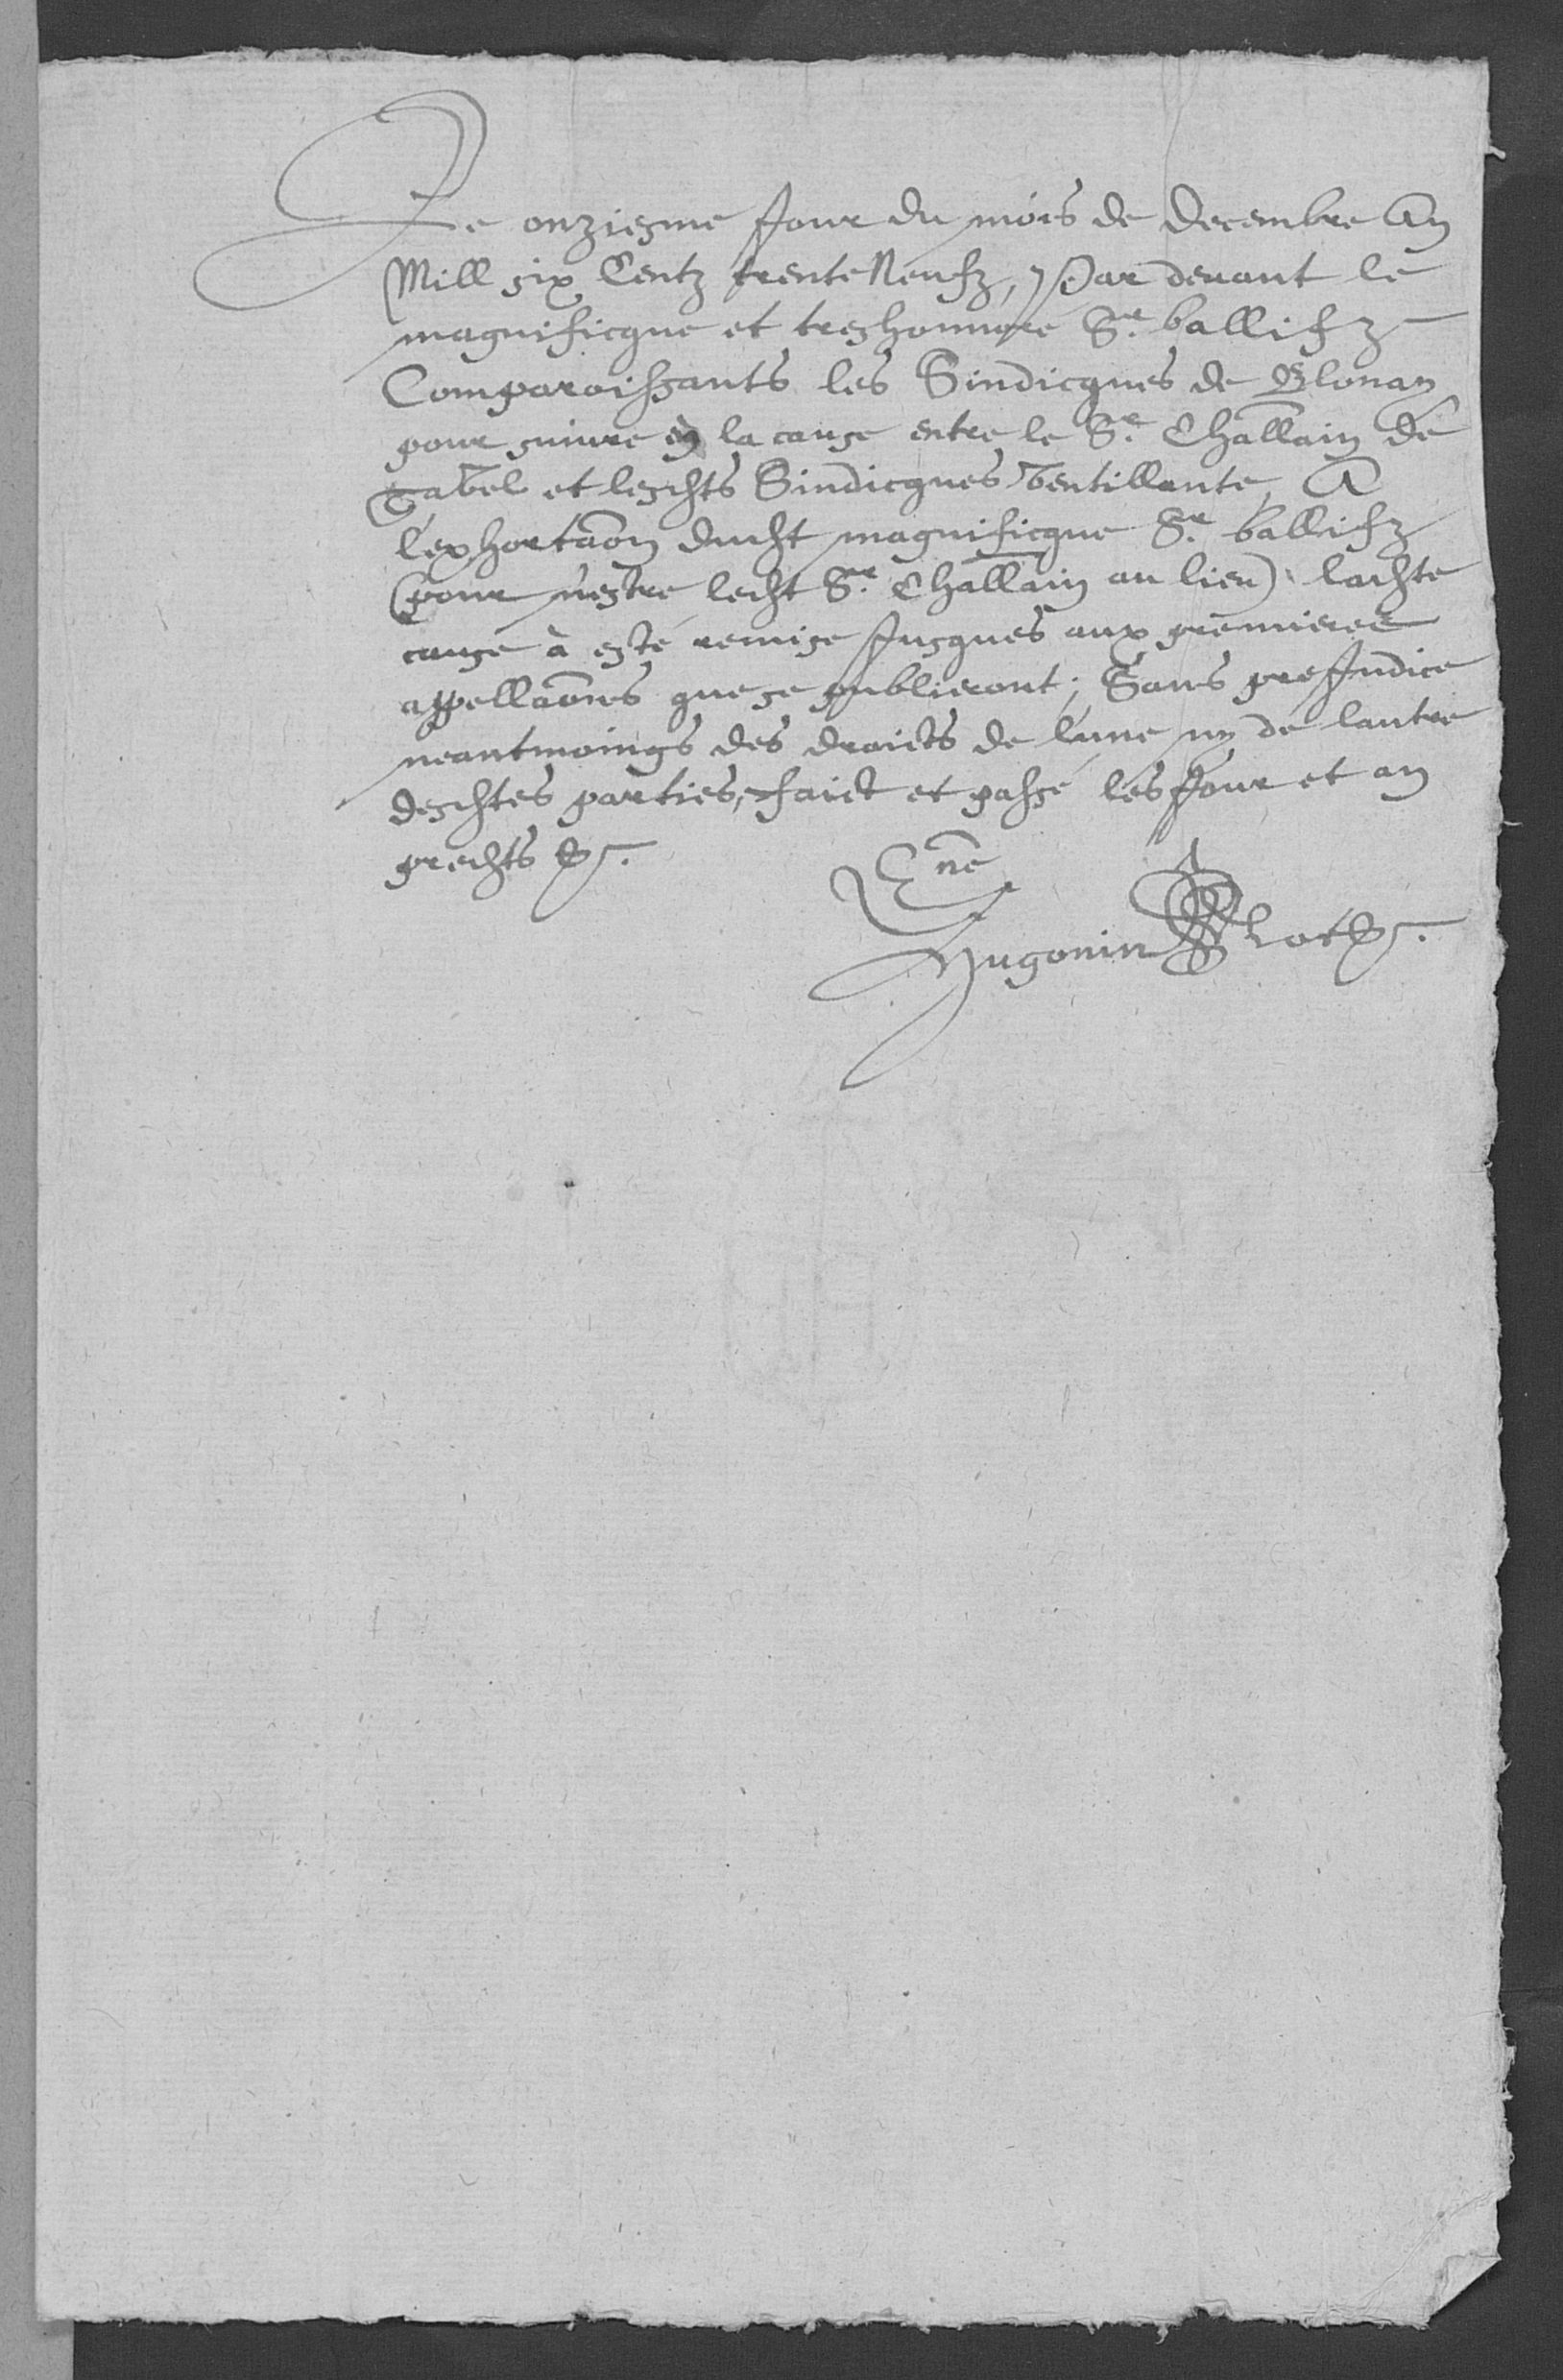 Le onziesme Jour du mois de decembre An
Mill six Centz trente Neufz, Par devant le
magnificque et treshonnoré Sr. ballifz
Comparoissants les Sindicques de Blonay
pour suivre en la cause entre le Sr. Challain de
Tavel et lesdts Sindicques ventillante, A
l'exhortaõn dudt magnificque Sr. ballifz
(pour n'estre ledt Sr. Challain au lieu) ladte
cause à esté remise Jusques aux premieres
appellaõns que se publieront; Sans preJudice
neantmoings des droicts de l'une ny de l'autre
desdtes parties, faict et passé les Jour et an
predts &.
Hugonin